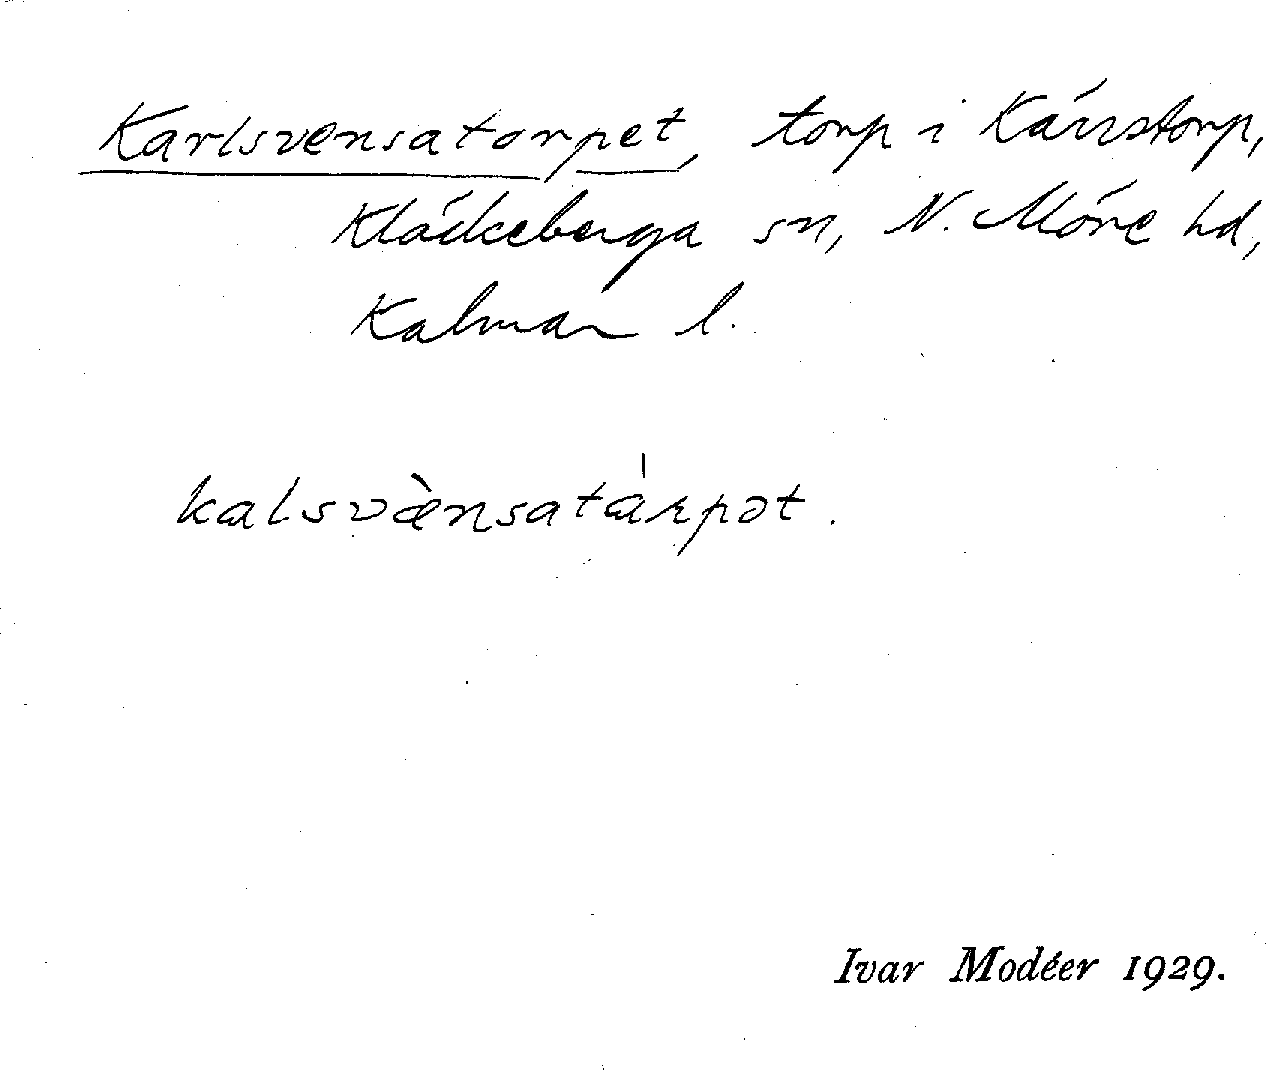 Karlsvensatorpet, torp i Kärrstorp,
Kläckeberga sn, N. Möre hd,
Kalmar l.
kalsvæ̀nsatȧrpət.
Ivar Modéer 1929.